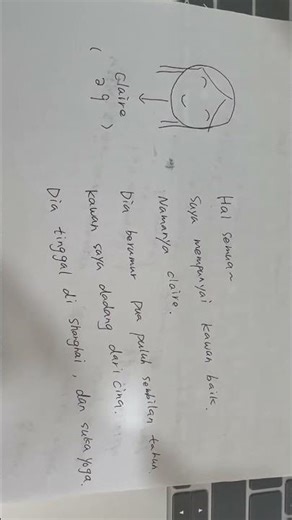 Claire
( 29 )
Hal semua~
Saya mempunyai kawan baik.
Namanya claire.
Dia berumur pua puluh sembilan tahun
kawan saya dadang dari cina.
Dia tinggal di shanghai, dan suka yoga.